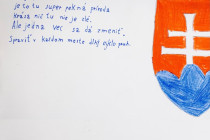 je to tu super pekná príroda
krása nič tu nie je zlé.
Ale jedna vec sa dá zmeniť.
Spraviť v každom meste dlhý cyklo pruh.